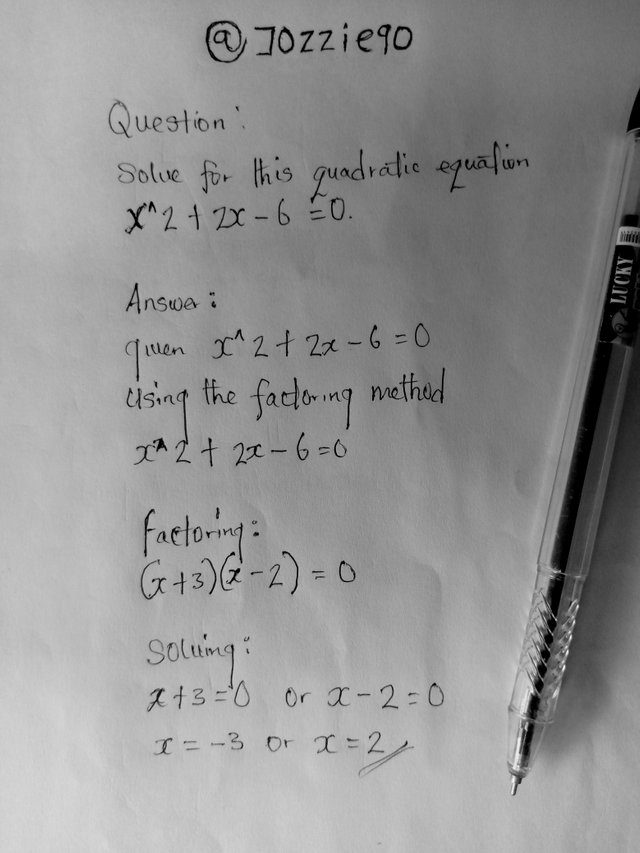 @Jozzie90
Question:
Solve for this quadratic equation
x^2 + 2x - 6 = 0.
Answer:
given x^2 + 2x - 6 = 0
Using the factoring method
x^2 + 2x - 6 = 0
factoring:
(x+3)(x-2) = 0
Solving:
x+3=0 or x-2=0
x = -3 or x = 2
LUCKY